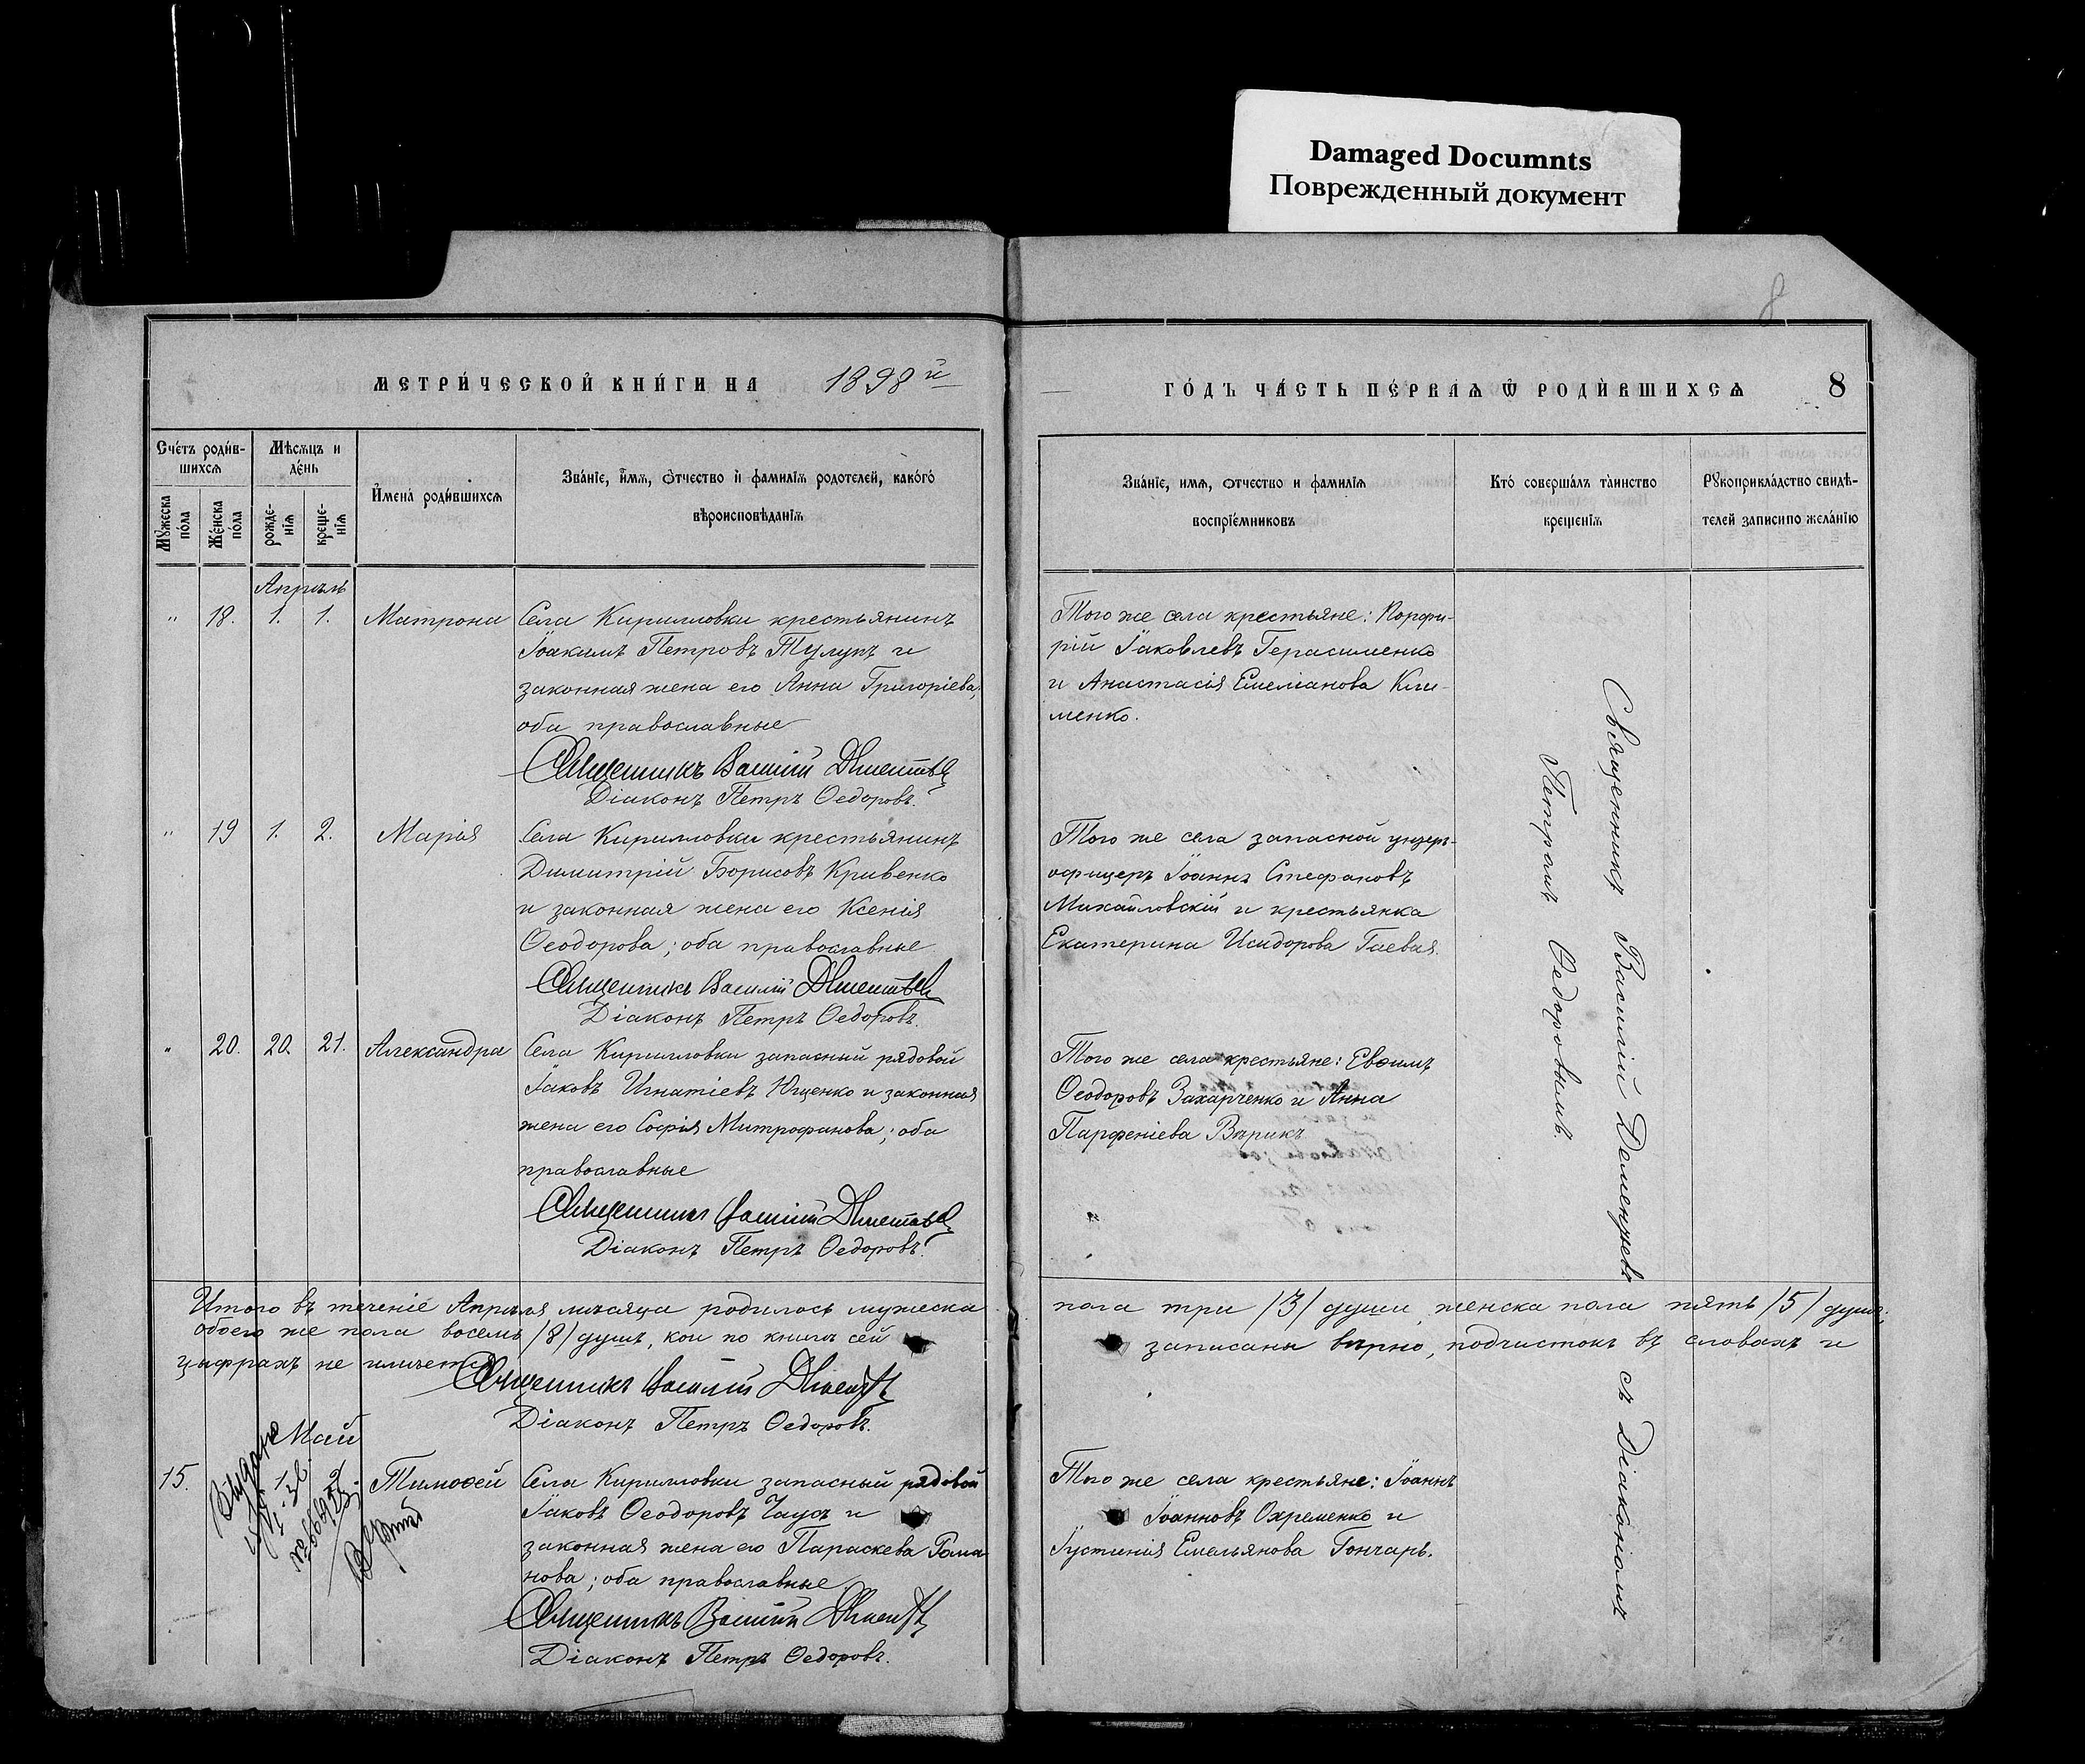 Damaged Documnts
Поврежденный документ
8
МЕТРИ́ЧЕСКОЙ КНИ́ГИ НА 1898 й
ГО́ДЪ ЧА́СТЬ ПЕ́РВАЯ Ѿ РОДИ́ВШИХСѦ 8
Сче́тъ роди́в-
шихсѧ
Мѣсѧцъ и
де́нь
Мꙋ́жеска
по́ла
Же́нска
по́ла
рожде-
нїѧ
креще-
нїѧ
И҆мена̀ роди́вшихсѧ
Зва́нїе, и҆́мѧ, ѻ҆́тчество и҆ фамилїѧ родотелей, како́гѡ
вѣроисповѣданїѧ
Зва́нїе, имѧ, ѻтчество и фамилїѧ
воспрїе́мниковъ
Кто́ соверша́лъ та̀инство
креще́нїѧ
Рꙋкоприкла́дство свидѣ-
телей записипо жела́нїю
Апрѣль
" 18. 1. 1. Матрона
Села Кирилловки крестьянинъ
Іоакимъ Петровъ Тулупъ и
законная жена его Анна Григоріева,
оба православные
Священникъ Василій
Діаконъ Петръ Ѳедоровъ.
Того же села крестьяне: Порфи-
рій Іаковлевъ Герасименко
и Анастасія Емеліанова Кли-
менко.
" 19 1. 2. Марія
Села Кирилловки крестьянинъ
Димитрій Борисовъ Кривенко
и законная жена его Ксенія
Ѳеодорова; оба православные
Священникъ Василій
Діаконъ Петръ Ѳедоровъ.
Того же села запасной унтеръ-
офицеръ Іоаннъ Стефановъ
Михайловскій и крестьянка
Екатерина Исидорова Гаевая.
" 20. 20. 21. Александра
Села Кирилловки запасный рядовой
Іаковъ Игнатіевъ Ющенко и законная
жена его Софія Митрофанова; оба
православные
Священникъ Василій
Діаконъ Петръ Ѳедоровъ.
Того же села крестьяне: Евѳимъ
Ѳеодоровъ Захарченко и Анна
Парфеніева Вѣрикъ
Священникъ Василій Дементьевъ съ Діакономъ
Петромъ Ѳедоровымъ.
Итого въ теченіе Апрѣля мѣсяца родилось мужеска пола три /3/ души, женска пола пять /5/ душъ;
обоего же пола восемь /8/ душъ, кои по книгѣ сей записаны вѣрно, подчистокъ въ словахъ и
цыфрахъ не имѣется
Священникъ Василій
Діаконъ Петръ Ѳедоровъ.
Май
15. 1. 2. Тимоѳей
Села Кирилловки запасный рядовой
Іаковъ Ѳеодоровъ Чаусъ и
законная жена его Параскева Рома-
нова; оба православные
Священникъ Василій
Діаконъ Петръ Ѳедоровъ.
Того же села крестьяне: Іоаннъ
Іоанновъ Охременко и
Іустинія Емельянова Гончаръ.